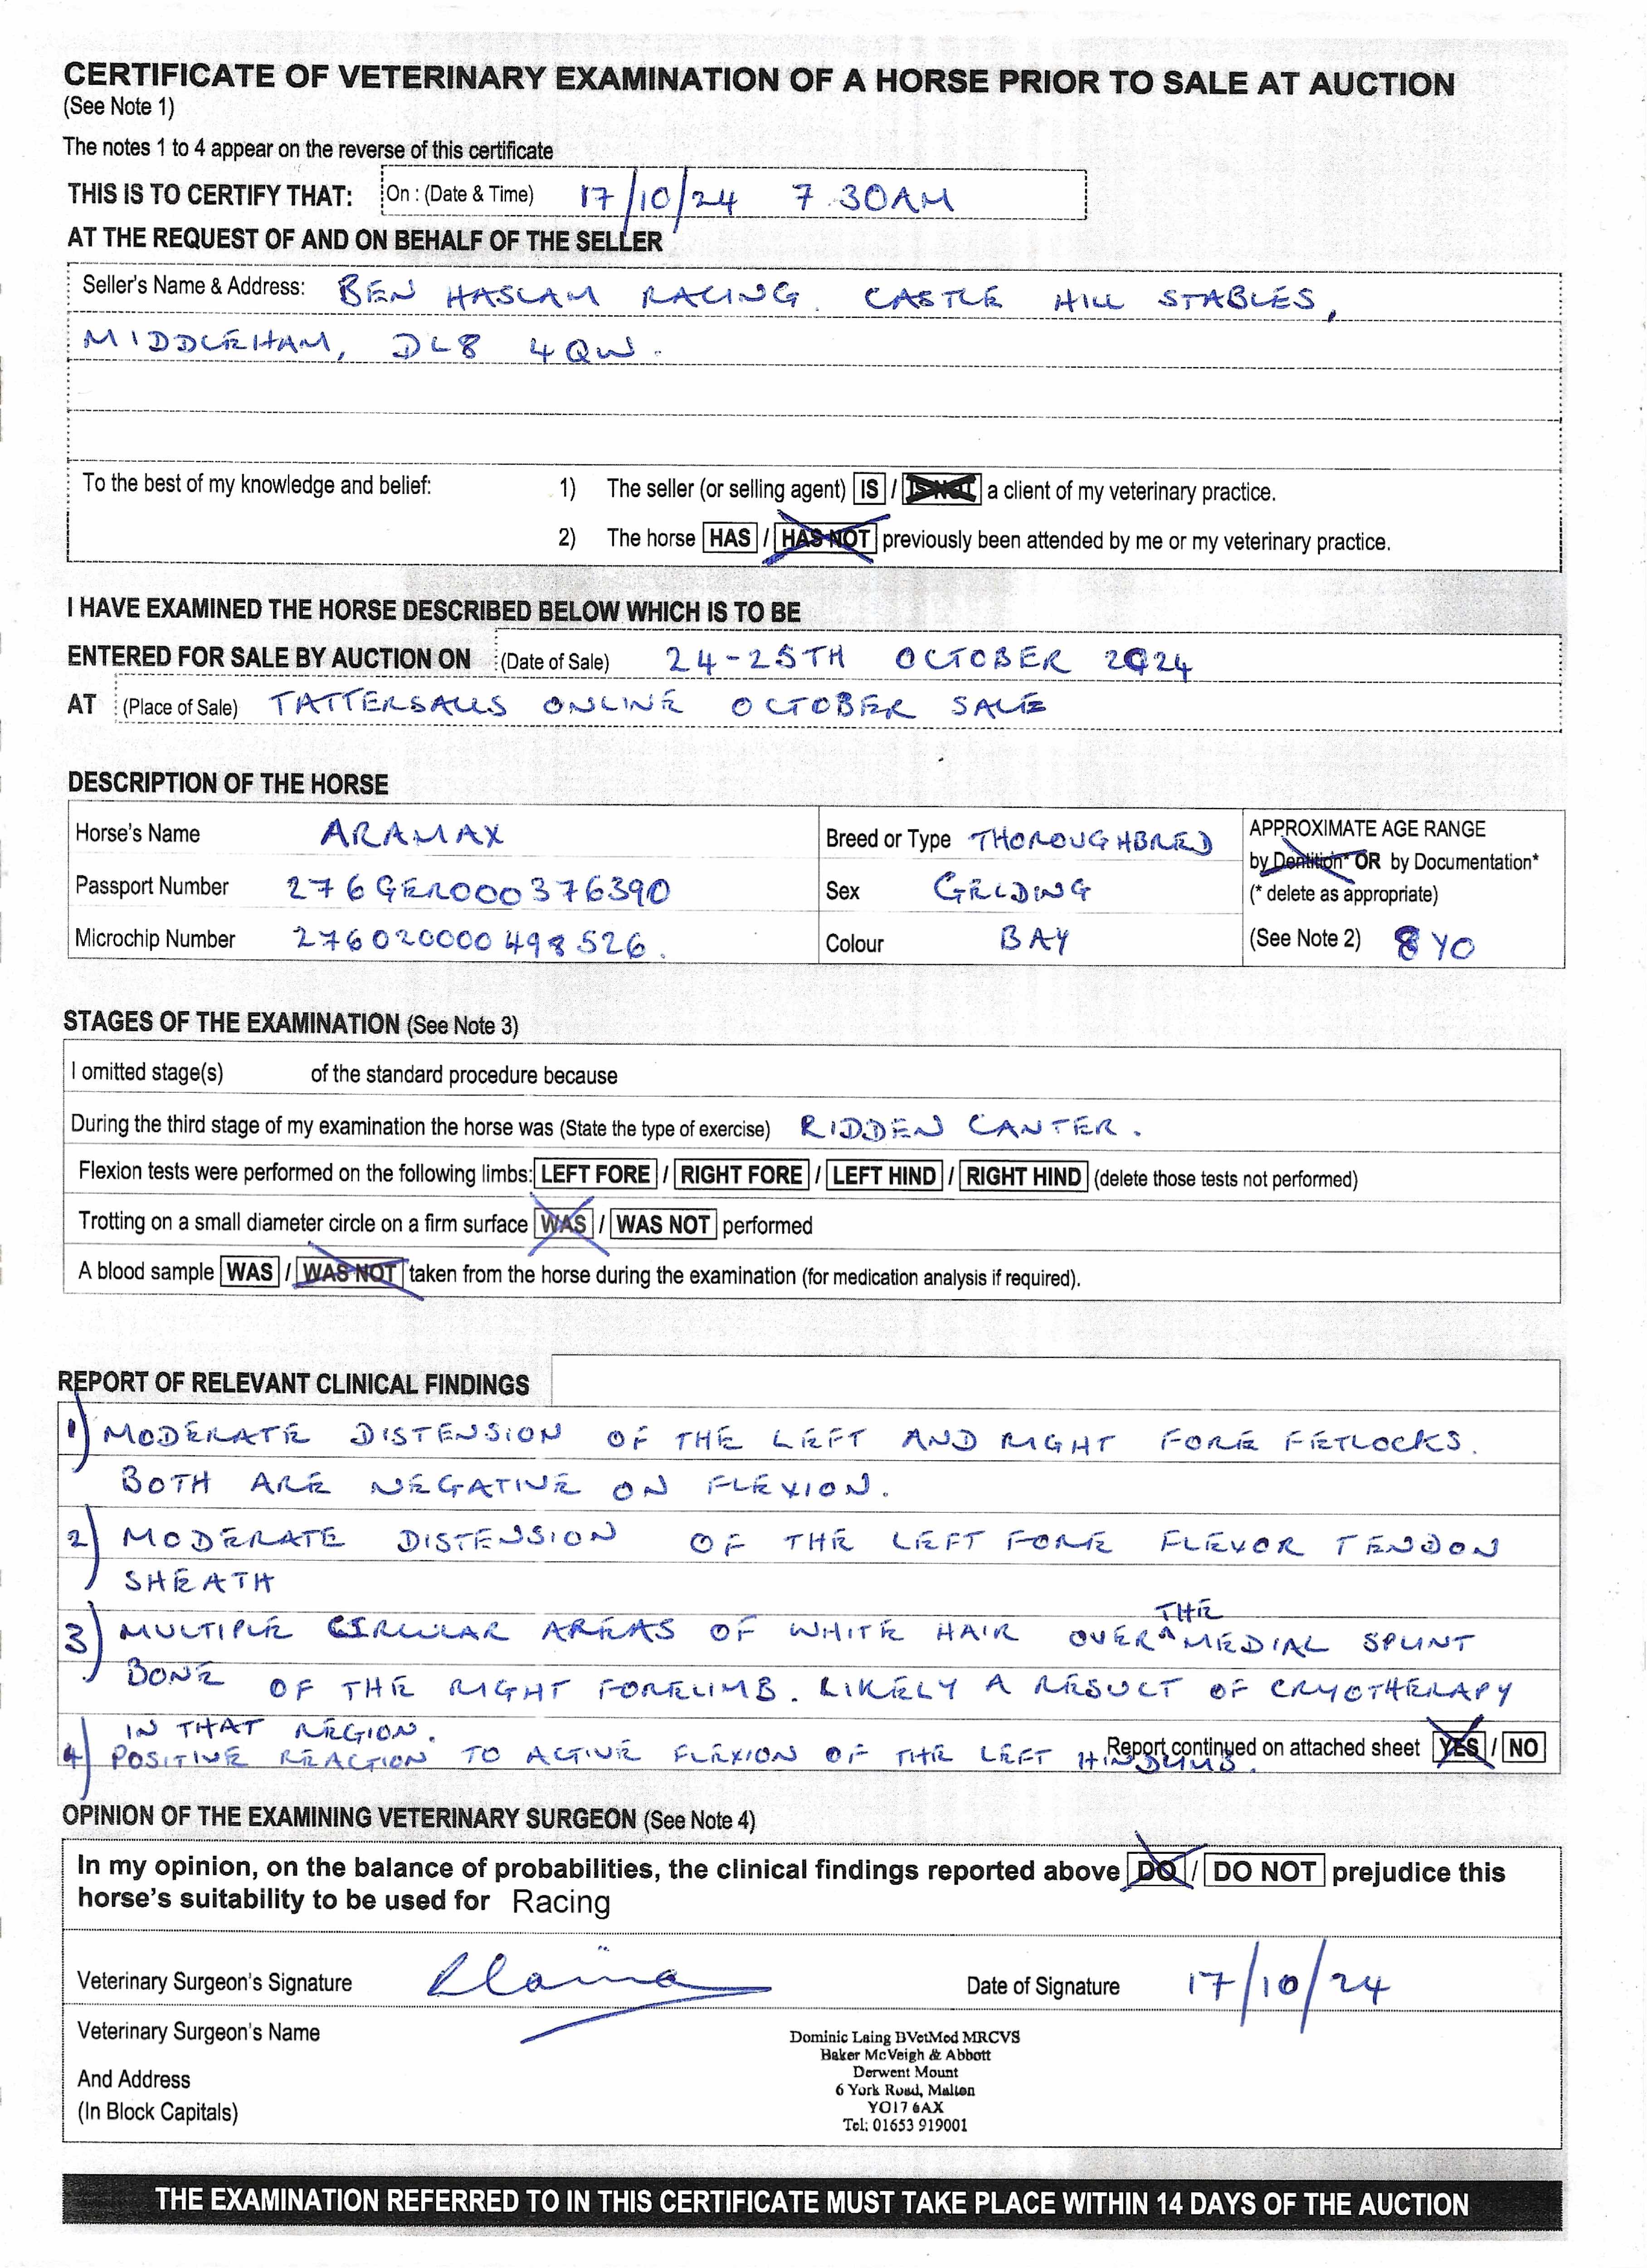 CERTIFICATE OF VETERINARY EXAMINATION OF A HORSE PRIOR TO SALE AT AUCTION
(See Note 1)
The notes 1 to 4 appear on the reverse of this certificate
THIS IS TO CERTIFY THAT: On : (Date & Time) 17/10/24 7.30AM
AT THE REQUEST OF AND ON BEHALF OF THE SELLER
Seller's Name & Address: BEN HASLAM RACING. CASTLE HILL STABLES,
MIDDLEHAM, DL8 4QW.
To the best of my knowledge and belief: 1) The seller (or selling agent) IS / IS NOT a client of my veterinary practice.
2) The horse HAS / HAS NOT previously been attended by me or my veterinary practice.
I HAVE EXAMINED THE HORSE DESCRIBED BELOW WHICH IS TO BE
ENTERED FOR SALE BY AUCTION ON (Date of Sale) 24-25TH OCTOBER 2024
AT (Place of Sale) TATTERSALLS ONLINE OCTOBER SALE
DESCRIPTION OF THE HORSE
Horse's Name ARAMAX Breed or Type THOROUGHBRED APPROXIMATE AGE RANGE
by Dentition* OR by Documentation*
Passport Number 276GER000376390 Sex GELDING (* delete as appropriate)
Microchip Number 276020000498526. Colour BAY (See Note 2) 8 YO
STAGES OF THE EXAMINATION (See Note 3)
I omitted stage(s) of the standard procedure because
During the third stage of my examination the horse was (State the type of exercise) RIDDEN CANTER.
Flexion tests were performed on the following limbs: LEFT FORE / RIGHT FORE / LEFT HIND / RIGHT HIND (delete those tests not performed)
Trotting on a small diameter circle on a firm surface WAS / WAS NOT performed
A blood sample WAS / WAS NOT taken from the horse during the examination (for medication analysis if required).
REPORT OF RELEVANT CLINICAL FINDINGS
1) MODERATE DISTENSION OF THE LEFT AND RIGHT FORE FETLOCKS.
BOTH ARE NEGATIVE ON FLEXION.
2) MODERATE DISTENSION OF THE LEFT FORE FLEXOR TENDON
SHEATH
3) MULTIPLE CIRCULAR AREAS OF WHITE HAIR OVER THE MEDIAL SPLINT
BONE OF THE RIGHT FORELIMB. LIKELY A RESULT OF CRYOTHERAPY
IN THAT REGION.
4) POSITIVE REACTION TO ACTIVE FLEXION OF THE LEFT HINDLIMB.
Report continued on attached sheet YES / NO
OPINION OF THE EXAMINING VETERINARY SURGEON (See Note 4)
In my opinion, on the balance of probabilities, the clinical findings reported above DO / DO NOT prejudice this
horse's suitability to be used for Racing
Veterinary Surgeon's Signature Date of Signature 17/10/24
Veterinary Surgeon's Name
And Address
(In Block Capitals)
Dominic Laing BVetMed MRCVS
Baker McVeigh & Abbott
Derwent Mount
6 York Road, Malton
YO17 6AX
Tel: 01653 919001
THE EXAMINATION REFERRED TO IN THIS CERTIFICATE MUST TAKE PLACE WITHIN 14 DAYS OF THE AUCTION